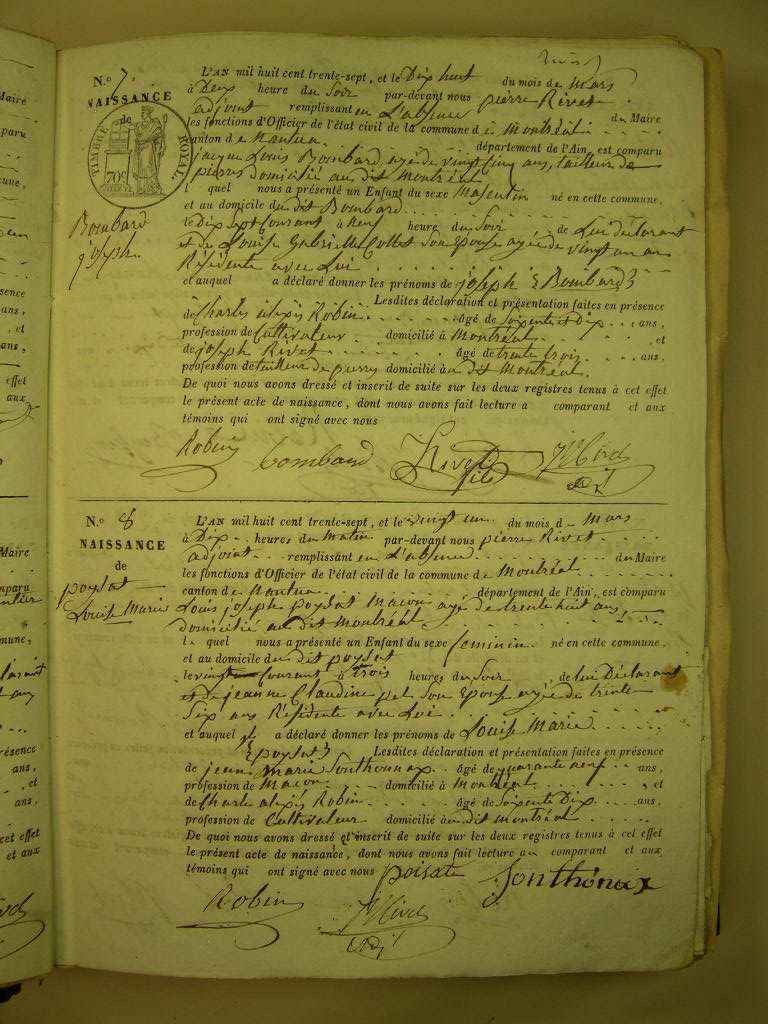 N.º 7.
NAISSANCE
de
TIMBRE ROYAL
70c
Bombard
joseph
L'AN mil huit cent trente-sept, et le Dix huit du mois de mars
à Deux heure du Soir par-devant nous pierre Rivet
adjoint remplissant en L'absence du Maire
les fonctions d'Officier de l'état civil de la commune de Montréal
canton de Nantua département de l'Ain, est comparu
jacque Louis Bombard, agé de vingt cinq ans, tailleur de
pierres domicilié au dit Montréal
l quel nous a présenté un Enfant du sexe Masculin né en cette commune,
et au domicile du dit Bombard
le Dix Sept Courant à neuf heure du Soir de Lui déclarant
et de Louise Gabrielle Collet Son Epouse agée de vingt un an
Résidente avec Lui
et auquel a déclaré donner les prénoms de joseph Bombard
Lesdites déclaration et présentation faites en présence
de Charles alexis Robin âgé de Soixente et Dix ans,
profession de Cultivateur domicilié à Montréal et
de joseph Rivet âgé de trente trois ans,
profession de tailleur de pierre domicilié au dit Montréal.
De quoi nous avons dressé et inscrit de suite sur les deux registres tenus à cet effet
le présent acte de naissance, dont nous avons fait lecture a comparant et aux
témoins qui ont signé avec nous
Robin bombard Rivet fils
N.º 8
NAISSANCE
de
poysat
Louise Marie
L'AN mil huit cent trente-sept, et le vingt un du mois de Mars
à Dix heures du Matin par-devant nous pierre Rivet
adjoint remplissant en L'absence du Maire
les fonctions d'Officier de l'état civil de la commune de Montréal
canton de Nantua département de l'Ain, est comparu
Louis joseph poysat Macon agé de trente huit ans,
domicilié au dit Montréal
l quel nous a présenté un Enfant du sexe feminin né en cette commune,
et au domicile du dit poysat
le vingt Courant à trois heures du Soir de lui Déclarant
et de jeanne Claudine pet Son Epouse agée de trente
Six ans Résidente avec Lui
et auquel il a déclaré donner les prénoms de Louise Marie
poysat Lesdites déclaration et présentation faites en présence
de jean Marie Sonthonnax âgé de quarante neuf ans,
profession de Macon domicilié à Montréal, et
de Charle alexis Robin âgé de Soixente Dix ans,
profession de Cultivateur domicilié au dit montréal
De quoi nous avons dressé et inscrit de suite sur les deux registres tenus à cet effet
le présent acte de naissance, dont nous avons fait lecture au comparant et aux
témoins qui ont signé avec nous poisat Sonthonax
Robin